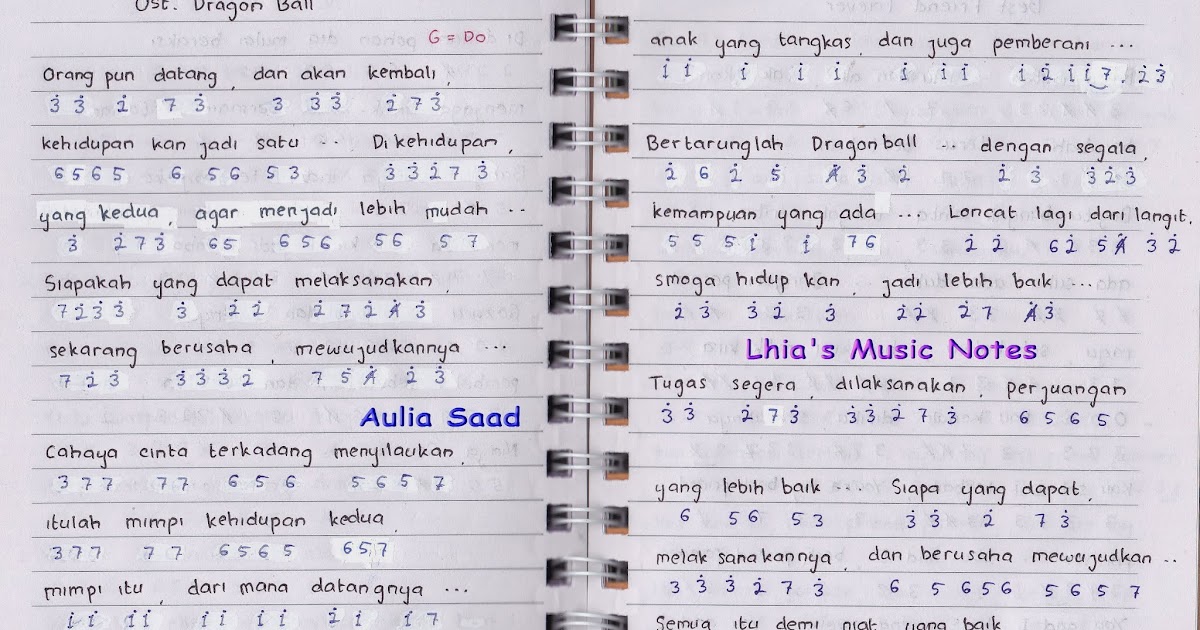 Ost. Dragon Ball
G = Do
Orang pun datang, dan akan kembali,
3̇ 3̇ 2̇ 7 3̇ 3̇ 3̇ 3̇ 2̇ 7 3̇
kehidupan kan jadi satu ... Di kehidupan,
6 5 6 5 6 5 6 5 3 3̇ 3̇ 2̇ 7 3̇
yang kedua, agar menjadi lebih mudah ...
3̇ 2̇ 7 3̇ 6 5 6 5 6 5 6 5 7
Siapakah yang dapat melaksanakan,
7 2̇ 3̇ 3̇ 3̇ 2̇ 2̇ 2̇ 7 2̇ 4̸̇ 3̇
sekarang berusaha, mewujudkannya ...
7 2̇ 3̇ 3̇ 3̇ 3̇ 2̇ 7 5 4̸̇ 2̇ 3̇
Aulia Saad
Cahaya cinta terkadang menyilaukan,
3 7 7 7 7 6 5 6 5 6 5 7
itulah mimpi kehidupan kedua,
3 7 7 7 7 6 5 6 5 6 5 7
mimpi itu, dari mana datangnya ...
1̇ 1̇ 1̇ 1̇ 1̇ 1̇ 1̇ 1̇ 2̇ 1̇ 1̇ 7
anak yang tangkas, dan juga pemberani ...
1̇ 1̇ 1̇ 1̇ 1̇ 1̇ 1̇ 1̇ 1̇ 2̇ 1̇ 1̇ 7 . 2̇ 3̇
Bertarunglah Dragonball ... dengan segala,
2̇ 6 2̇ 5̇ 4̸̇ 3̇ 2̇ 2̇ 3̇ 3̇ 2̇ 3̇
kemampuan yang ada ... Loncat lagi dari langit,
5 5 5 1̇ 1̇ 7 6 2̇ 2̇ 6 2̇ 5̇ 4̸̇ 3̇ 2̇
smoga hidup kan, jadi lebih baik ...
2̇ 3̇ 3̇ 2̇ 3̇ 2̇ 2̇ 2̇ 7 4̸̇ 3̇
Lhia's Music Notes
Tugas segera, dilaksanakan, perjuangan
3̇ 3̇ 2̇ 7 3̇ 3̇ 3̇ 2̇ 7 3̇ 6 5 6 5
yang lebih baik ... Siapa yang dapat,
6 5 6 5 3 3̇ 3̇ 2̇ 7 3̇
melaksanakannya, dan berusaha mewujudkan ..
3̇ 3̇ 3̇ 2̇ 7 3̇ 6 5 6 5 6 5 6 5 7
Semua itu demi niat yang baik